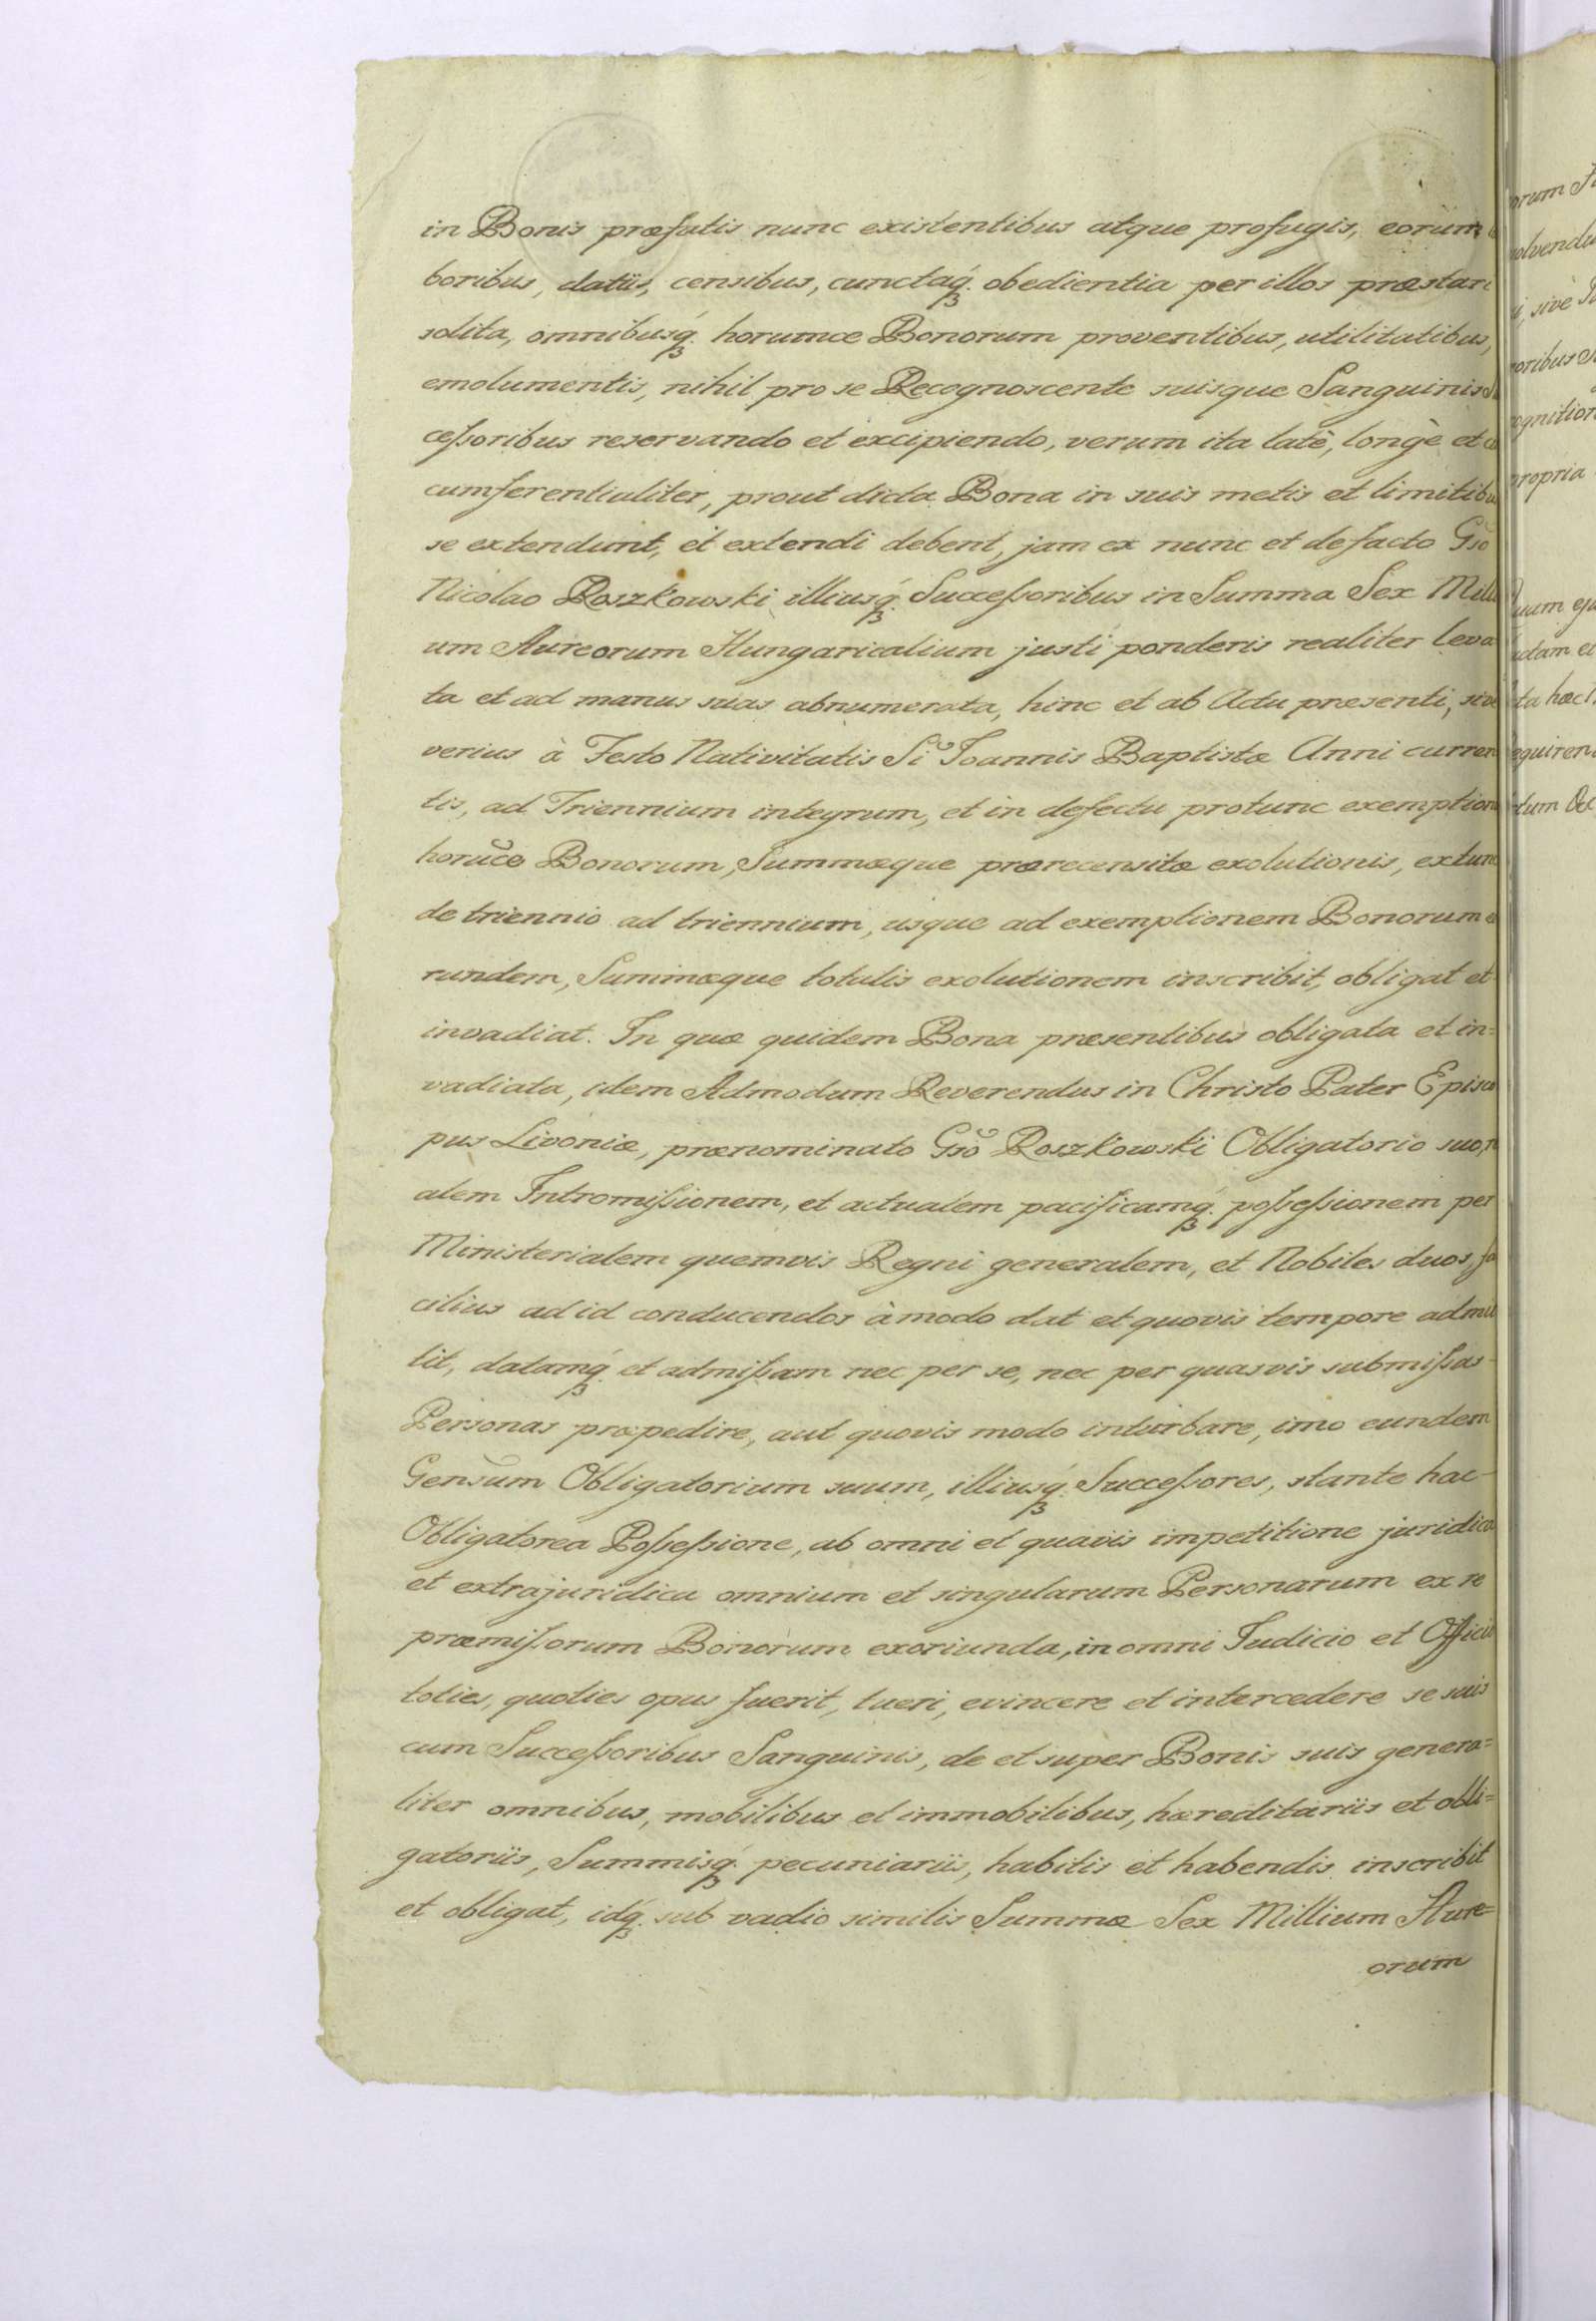 in Bonis præfatis nunc existentibus atque profugis, eorum
boribus, datiis, censibus, cunctaq́ꝫ. obedientia per illos præstari
solita, omnibusq́ꝫ. horumce Bonorum proventibus, utilitatibus,
emolumentis, nihil pro se Recognoscente suisque Sanguinis
ceſsoribus reservando et excipiendo, verum ita latè, longè et
cumferentialiter, prout dicta Bona in suis metis et limitibu
se extendunt, et extendi debent, jam ex nunc et de facto Gso
Nicolao Roszkowski illiusq́ꝫ. Succeſsoribus in Summa Sex Milli
um Aureorum Hungaricalium justi ponderis realiter leva
ta et ad manus suas abnumerata, hinc et ab Actu præsenti, sive
verius à Festo Nativitatis Si Joannis Baptistæ Anni curren
tis, ad Triennium integrum, et in defectu protunc exemption
horuce Bonorum, Summæque prærecensitæ exolutionis, extunc
de triennio ad triennium, usque ad exemptionem Bonorum e
rundem, Summæque totalis exolutionem inscribit, obligat et
invadiat. In quæ quidem Bona præsentibus obligata et in=
vadiata, idem Admodum Reverendus in Christo Pater Episco
pus Livoniæ, prænominato Gso Roszkowski Obligatorio suo, r
alem Intromiſsionem, et actualem pacificamq́ꝫ. poſseſsionem per
Ministerialem quemvis Regni generalem, et Nobiles duos, fa
cilius ad id conducendos àmodo dat et quovis tempore admit
tit, datamq́ꝫ. et admiſsam nec per se, nec per quasvis submiſsas
Personas præpedire, aut quovis modo inturbare, imo eundem
Gensum Obligatorium suum, illiusq́ꝫ. Succeſsores, stante hac
Obligatorea Poſseſsione, ab omni et quavis impetitione juridica
et extrajuridica omnium et singularum Personarum ex re
præmiſsorum Bonorum exoriunda, in omni Judicio et Officio
toties, quoties opus fuerit, tueri, evincere et intercedere se suis
cum Succeſsoribus Sanguinis, de et super Bonis suis genera=
liter omnibus, mobilibus et immobilibus, hæreditariis et obli=
gatoriis, Summisq́ꝫ. pecuniariis, habitis et habendis inscribit
et obligat, idq́ꝫ. sub vadio similis Summæ Sex Millium Aure=
orum